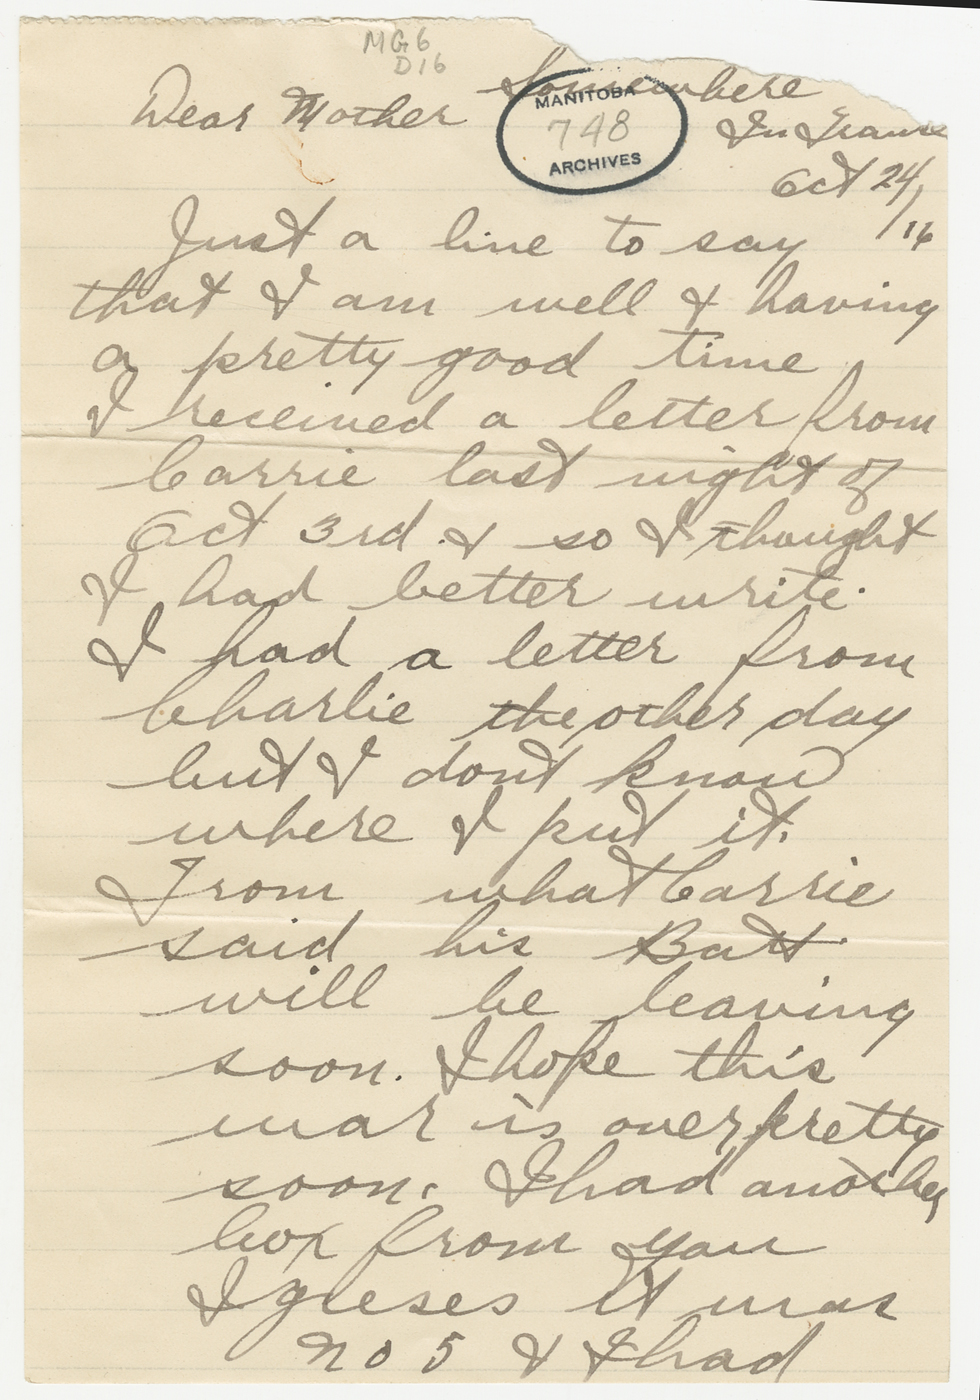 MG6
D16
Somewhere
Dear Mother
MANITOBA
748
ARCHIVES
In France
Oct 24/16
Just a line to say
that I am well & having
a pretty good time
I received a letter from
Carrie last night of
Oct 3rd. & so I thought
I had better write.
I had a letter from
Charlie the other day
but I dont know
where I put it.
From what Carrie
said his Batt.
will be leaving
soon. I hope this
war is over pretty
soon. I had another
box from you
I gueses it was
No 5 & I had